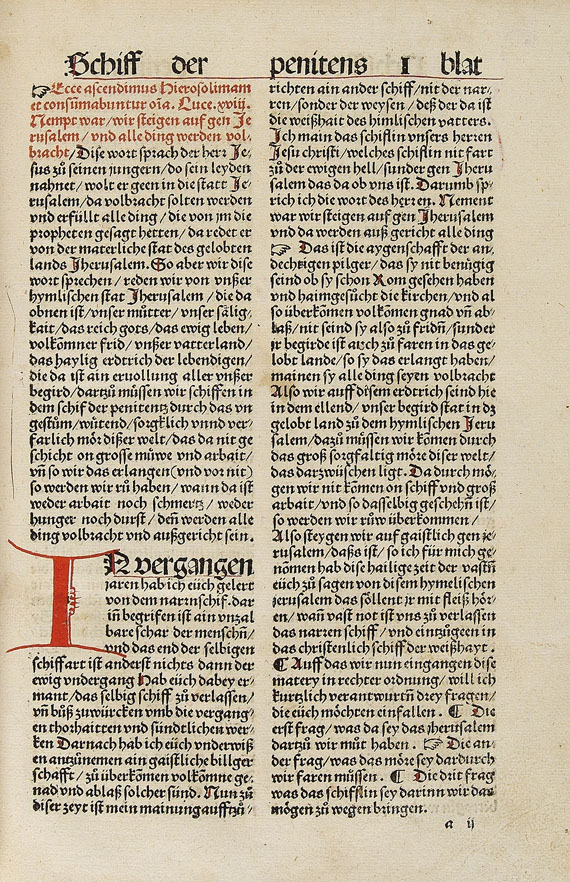 Schiff der penitens I blat
☞Ecce ascendimus Hierosolimam
et consūmabuntur oīa. Luce. xviij.
Nempt war/wir steigen auf gen Je
rusalem/vnd alle ding werden vol⸗
bracht/Dise wort sprach der herr Je⸗
sus zů seinen jungern/do sein leyden
nahnet/wolt er geen in die statt Je⸗
rusalem/da volbracht solten werden
vnd erfüllt alle ding/die von jm die
propheten gesagt hetten/da redet er
von der materliche stat des gelobten
lands Jherusalem. So aber wir dise
wort sprechen/reden wir von vnßer
hymlischen stat Jherusalem/die da
obnen ist/vnser můtter/vnser sälig⸗
kait/das reich gots/das ewig leben/
volkōmner frid/vnßer vatterland/
das haylig erdtrich der lebendigen/
die da ist ain eruollung aller vnßer
begird/dartzů müssen wir schiffen in
dem schif der penitentz durch das vn
gestüm/wütend/sorgklich vnnd ver⸗
farlich mör dißer welt/das da nit ge
schicht on grosse müwe vnd arbait/
vn̄ so wir das erlangen(vnd vor nit)
so werden wir rů haben/wann da ist
weder arbait noch schmertz/weder
hunger noch durst/den̄ werden alle
ding volbracht vnd außgericht sein.
IN vergangen
jaren hab ich eüch gelert
von dem narrnschif. dar
in̄ begrifen ist ain vnzal
bare schar der menschn̄/
vnd das end der selbigen
schiffart ist anderst nichts dann der
ewig vndergang Hab eüch dabey er⸗
mant/das selbig schiff zů verlassen/
vn̄ bůß zuwürcken vmb die vergang⸗
en thorhaitten vnd sündtlichen wer⸗
ken Darnach hab ich eüch vnderwiß
en antzůnemen ain gaistliche billger
schafft/zů überkōmen volkōmne ge⸗
nad vnd ablaß solcher sünd. Nun zů
diser zeyt ist mein mainung aufftzů⸗
richten ain ander schiff/nit der nar⸗
ren/sonder der weysen/deß der da ist
die weißhait des himlischen vatters.
Ich main das schiflin vnsers herren
Jesu christi/welches schiflin nit fart
zů der ewigen hell/sunder gen Jheru
salem das da ob vns ist. Darumb sp⸗
rich ich die wort des herren. Nement
war wir steigen auf gen Jherusalem
vnd da werden auß gericht alle ding
☞ Das ist die aygenschafft der an⸗
dechtigen pilger/das sy nit benügig
seind ob sy schon Rom gesehen haben
vnd haimgesůcht die kirchen/vnd al
so überkōmen volkōmen gnad vn̄ ab⸗
laß/nit seind sy also zů fridn̄/sunder
jr begirde ist auch zů faren in das ge⸗
lobt lande/so sy das erlangt haben/
mainen sy alle ding seyen volbracht
Also wir auff disem erdtrich seind hie
in dem ellend/vnser begird stat in dz
gelobt land zů dem hymlischen Jeru
salem/dazů müssen wir kōmen durch
das groß sorgfaltig möre diser welt/
das darzwüschen ligt. Da durch mö⸗
gen wir nit kōmen on schiff vnd groß
arbait/vnd so dasselbig geschehn̄ ist/
so werden wir růw überkommen/
Also steygen wir auff gaistlich gen je⸗
rusalem/daßs ist/so ich für mich ge⸗
nōmen hab die hailige zeit der vastn̄
eüch zů sagen von disem hymelischen
jerusalem das söllent jr mit fleiß hör⸗
en/wan̄ vast not ist vns zů verlassen
das narren schiff/vnd einzůgeen in
das christenlich schiff der weißhayt.
¶ Auff das wir nun eingangen dise
matery in rechter ordnung/will ich
kurtzlich verantwurtn̄ drey fragen/
die eüch möchten einfallen. ¶ Die
erst frag/was da sey das jherusalem
dartzů wir müt haben. ☞ Die an⸗
der frag/was das möre sey dardurch
wir faren müssen. ¶ Die drit frag
was das schiflin sey darinn wir das
mögen zů wegen bringen.
a ij